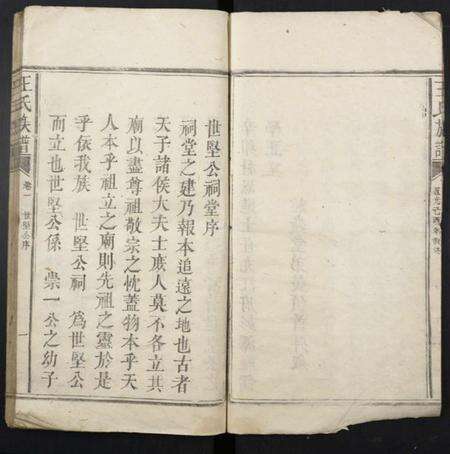 世堅公祠堂序
祠堂之建乃報本追遠之地也古者
天子諸侯大夫士庶人莫不各立其
廟以盡尊祖敬宗之忱蓋物本乎天
人本乎祖立之廟則先祖之靈於是
乎依我族 世堅公祠 為世堅公
而立也世堅公係 崇一公之幼子
王氏族譜
卷一 世堅公序
一
王氏族譜